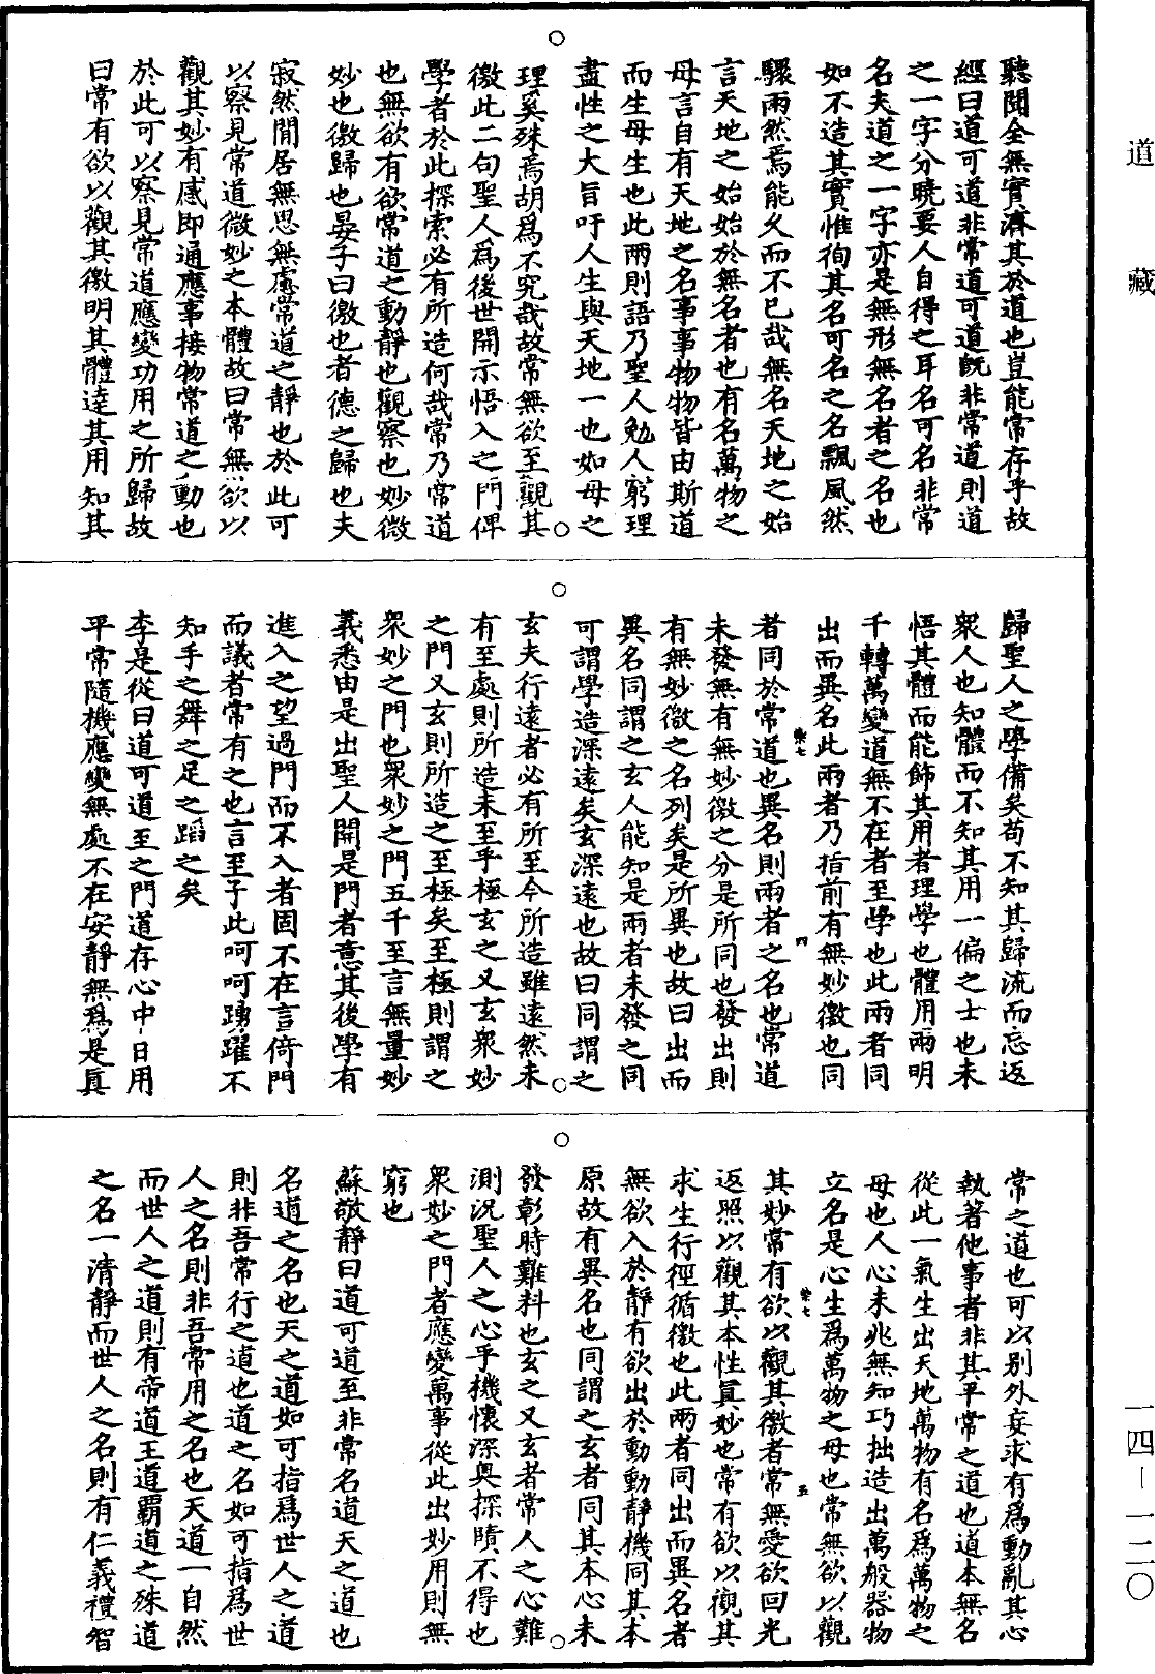 道藏
一四—一二〇
聽聞全無實濟其於道也豈能常存乎故
經曰道可道非常道可道既非常道則道
之一字分曉要人自得之耳名可名非常
名夫道之一字亦是無形無名者之名也
如不造其實惟徇其名可名之名飄風然
驟雨然焉能久而不已哉無名天地之始
言天地之始始於無名者也有名萬物之
母言自有天地之名事事物物皆由斯道
而生母生也此兩則語乃聖人勉人窮理
盡性之大旨吁人生與天地一也如母之
理奚殊焉胡爲不究哉故常無欲至觀其
徼此二句聖人爲後世開示悟入之門俾
學者於此探索必有所造何哉常乃常道
也無欲有欲常道之動靜也觀察也妙微
妙也徼歸也晏子曰徼也者德之歸也夫
寂然閒居無思無慮常道之靜也於此可
以察見常道微妙之本體故曰常無欲以
觀其妙有感即通應事接物常道之動也
於此可以察見常道應變功用之所歸故
曰常有欲以觀其徼明其體達其用知其
歸聖人之學備矣苟不知其歸流而忘返
衆人也知體而不知其用一偏之士也未
悟其體而能飾其用者理學也體用兩明
千轉萬變道無不在者至學也此兩者同
出而異名此兩者乃指前有無妙徼也同
者同於常道也異名則兩者之名也常道
未發無有無妙徼之分是所同也發出則
有無妙徼之名列矣是所異也故曰出而
異名同謂之玄人能知是兩者未發之同
可謂學造深遠矣玄深遠也故曰同謂之
玄夫行遠者必有所至今所造雖遠然未
有至處則所造未至乎極玄之又玄衆妙
之門又玄則所造之至極矣至極則謂之
衆妙之門也衆妙之門五千至言無量妙
義悉由是出聖人開是門者意其後學有
進入之望過門而不入者固不在言倚門
而議者常有之也言至于此呵呵踴躍不
知手之舞之足之蹈之矣
李是從曰道可道至之門道存心中日用
平常隨機應變無處不在安靜無爲是眞
常之道也可以別外妄求有爲動亂其心
執著他事者非其平常之道也道本無名
從此一氣生出天地萬物有名爲萬物之
母也人心未兆無知巧拙造出萬般器物
立名是心生爲萬物之母也常無欲以觀
其妙常有欲以觀其徼者常無愛欲回光
返照以觀其本性眞妙也常有欲以觀其
求生行徑循徼也此兩者同出而異名者
無欲入於靜有欲出於動動靜機同其本
原故有異名也同謂之玄者同其本心未
發彰時難料也玄之又玄者常人之心難
測況聖人之心乎機懷深奥探賾不得也
衆妙之門者應變萬事從此出妙用則無
窮也
蘇敬靜曰道可道至非常名道天之道也
名道之名也天之道如可指爲世人之道
則非吾常行之道也道之名如可指爲世
人之名則非吾常用之名也天道一自然
而世人之道則有帝道王道覇道之殊道
之名一清靜而世人之名則有仁義禮智